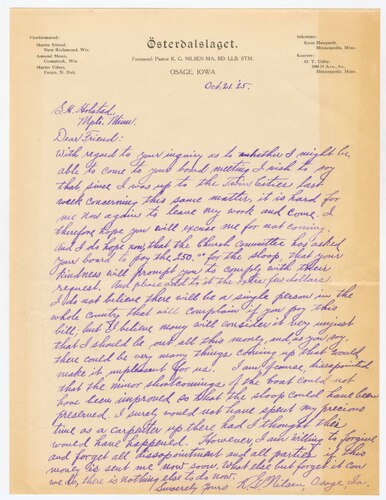 Viceformænd:
Martin Sintrud,
New Richmond, Wis.
Amund Moen,
Comstock, Wis.
Martin Ulfsn,
Fargo, N. Dak.
Österdalslaget.
Formand: Pastor K. G. NILSEN MA, BD. LLB. STM.
OSAGE, IOWA
Sekretær:
Knut Haugseth,
Minneapolis, Minn.
Kasserer:
O. T. Udby,
Minneapolis, Minn.
Oct. 21 '25.
S. H. Holstad,
Mpls. Minn.
Dear Friend:
With regard to your inquiry as to whether I might be
able to come to your board meeting I wish to say
that, since I was up to the Twin Cities last
week concerning this same matter, it is hard for
me now again to leave my work and come. I
therefore hope you will excuse me for not coming.
And I do hope now, that the Church Committee has asked
your board to pay the 250.00 for the sloop, that your
kindness will prompt you to comply with their
request. And please add to it the other few dollars.
I do not believe there will be a single person in the
whole country that will complain if you pay this
bill, but I believe many will consider it very unjust
that I should be out all this money, and as you say,
there could be very many things coming up that would
make it unpleasant for us. I am, of course, disappointed
that the minor shortcomings of the boat could not
have been improved so that the sloop could have been
preserved. I surely would not have spent my precious
time as a carpenter up there had I thought this
would have happened. However, I am willing to forgive
and forget all disappointment and all parties if this
money be sent me now soon. What else but forget it can
we do, there is nothing else to do now.
Sincerely Yours K. G. Nilsen, Osage, Ia.